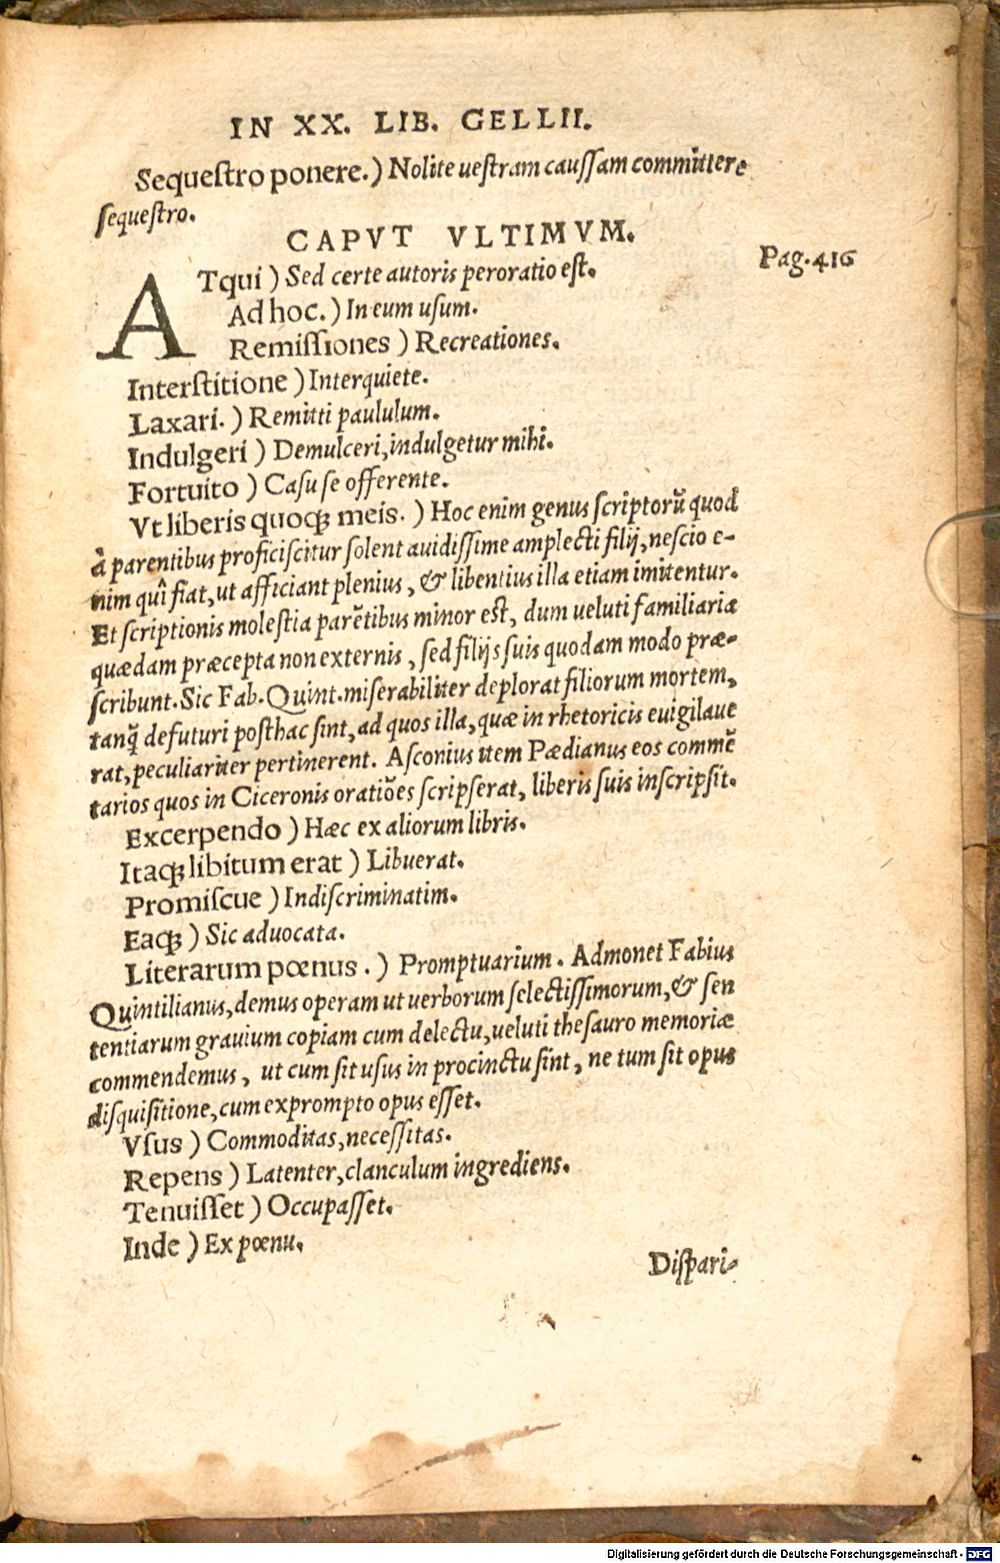 IN XX. LIB. GELLII.
Sequeſtro ponere.) Nolite ueſtram cauſſam committere
ſequeſtro.
CAPVT VLTIMVM.
Pag. 416
ATqui) Sed certe autoris peroratio eſt.
Ad hoc.) In eum uſum.
Remiſſiones) Recreationes.
Interſtitione) Interquiete.
Laxari.) Remitti paululum.
Indulgeri) Demulceri, indulgetur mihi.
Fortuito) Caſu ſe offerente.
Vt liberis quoqꝫ meis.) Hoc enim genus ſcriptorũ quod
à parentibus proficiſcitur ſolent auidiſſime amplecti filij, neſcio e-
nim quî fiat, ut afficiant plenius, & libentius illa etiam imitentur.
Et ſcriptionis moleſtia parẽtibus minor eſt, dum ueluti familiaria
quædam præcepta non externis, ſed filijs ſuis quodam modo præ-
ſcribunt. Sic Fab. Quint. miſerabiliter deplorat filiorum mortem,
tanq̃ defuturi poſthac ſint, ad quos illa, quæ in rhetoricis euigilaue
rat, peculiariter pertinerent. Aſconius item Pædianus eos commẽ
tarios quos in Ciceronis oratiões ſcripſerat, liberis ſuis inſcripſit.
Excerpendo) Hæc ex aliorum libris.
Itaqꝫ libitum erat) Libuerat.
Promiſcue) Indiſcriminatim.
Eaqꝫ) Sic aduocata.
Literarum pœnus.) Promptuarium. Admonet Fabius
Quintilianus, demus operam ut uerborum ſelectiſſimorum, & ſen
tentiarum grauium copiam cum delectu, ueluti theſauro memoriæ
commendemus, ut cum ſit uſus in procinctu ſint, ne tum ſit opus
diſquiſitione, cum exprompto opus eſſet.
Vſus) Commoditas, neceſſitas.
Repens) Latenter, clanculum ingrediens.
Tenuiſſet) Occupaſſet.
Inde) Ex pœnu.
Diſpari-
Digitalisierung gefördert durch die Deutsche Forschungsgemeinschaft - DFG